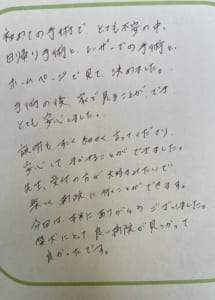 初めての手術で、とても不安の中、
日帰り手術と、レーザーでの手術と、
ホームページで見て、決めました。
手術の後、家で見ることができ
とても安心しました。
説明も、すぐ 言って くださり
安心して まかせることができました。
先生、受付の方が大好きみたいで
楽しく 病院に行くことができます。
今回は、本当にありがとうございました。
愛犬にとって良い病院が見つかって
良かったです。